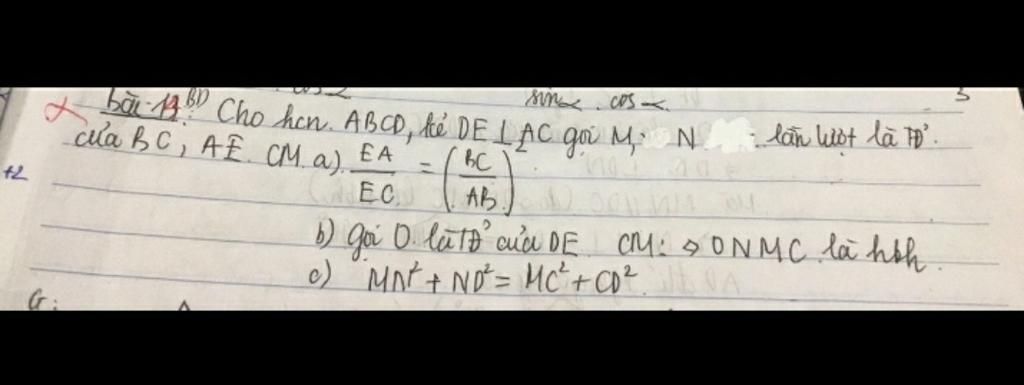 sinα . cosα
3
bài 13 BD: Cho hcn. ABCD, kẻ DE ⊥ AC gọi M; N lần lượt là TĐ'.
của BC, AE. CM a) EA/EC = (BC/AB)²
+2
b) gọi O. là TĐ' của DE CM: ONMC là hbh.
c) MN² + ND² = MC² + CD²